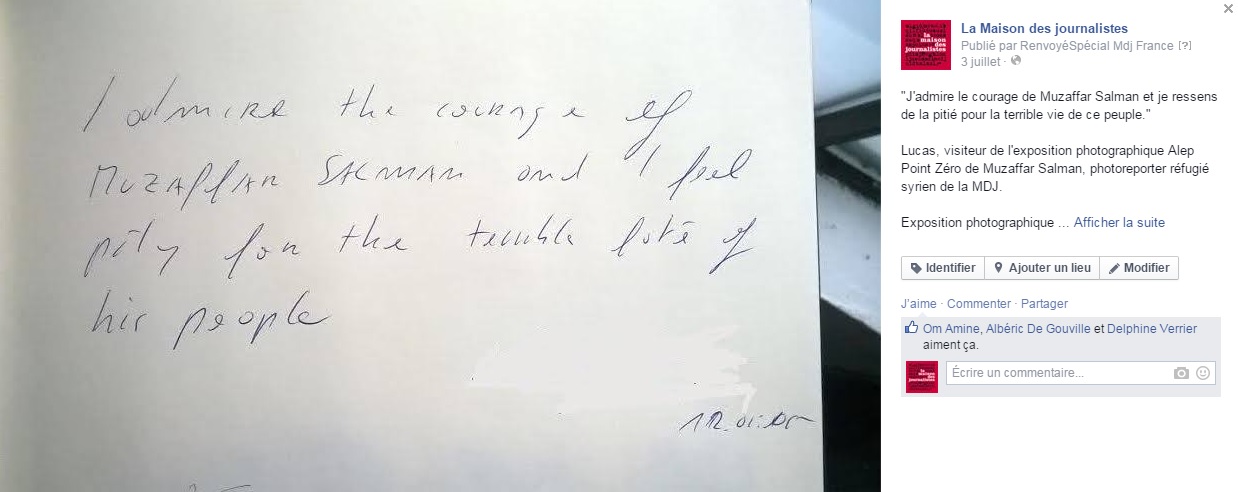 I admire the courage of
Muzaffar SALMAN and I feel
pity for the terrible fate of
his people
La Maison des journalistes
Publié par RenvoyéSpécial Mdj France [?]
3 juillet ·
"J'admire le courage de Muzaffar Salman et je ressens
de la pitié pour la terrible vie de ce peuple."
Lucas, visiteur de l'exposition photographique Alep
Point Zéro de Muzaffar Salman, photoreporter réfugié
syrien de la MDJ.
Exposition photographique ... Afficher la suite
Identifier Ajouter un lieu Modifier
J'aime · Commenter · Partager
Om Amine, Albéric De Gouville et Delphine Verrier
aiment ça.
Écrire un commentaire...
la
maison
des
journalistes